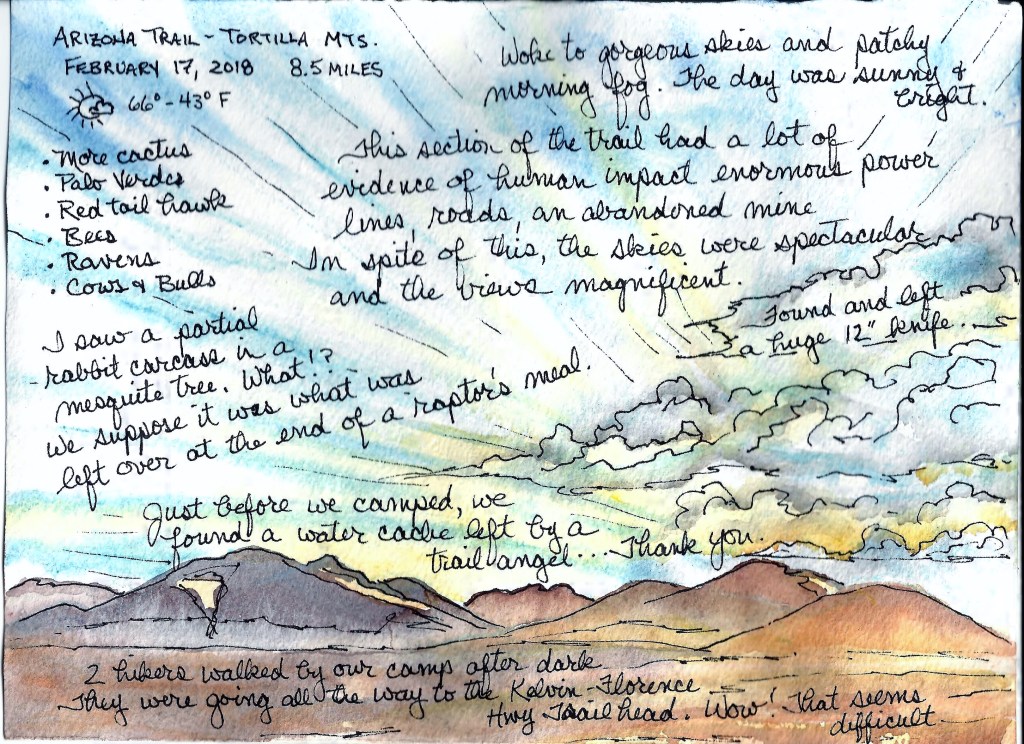 ARIZONA TRAIL - TORTILLA MTS.
FEBRUARY 17, 2018 8.5 MILES
66° - 43° F
• More cactus
• Palo Verdes
• Red tail hawk
• Bees
• Ravens
• Cows & Bulls
Woke to gorgeous skies and patchy
morning fog. The day was sunny &
bright.
This section of the trail had a lot of
evidence of human impact enormous power
lines, roads, an abandoned mine
In spite of this, the skies were spectacular
and the views magnificent.
Found and left
a huge 12" knife...
I saw a partial
rabbit carcass in a
mesquite tree. What!?
We suppose it was what was
left over at the end of a raptor's meal.
Just before we camped, we
found a water cache left by a
trail angel.... Thank you.
2 hikers walked by our camp after dark
They were going all the way to the Kelvin-Florence
Hwy Trailhead. Wow! That seems
difficult